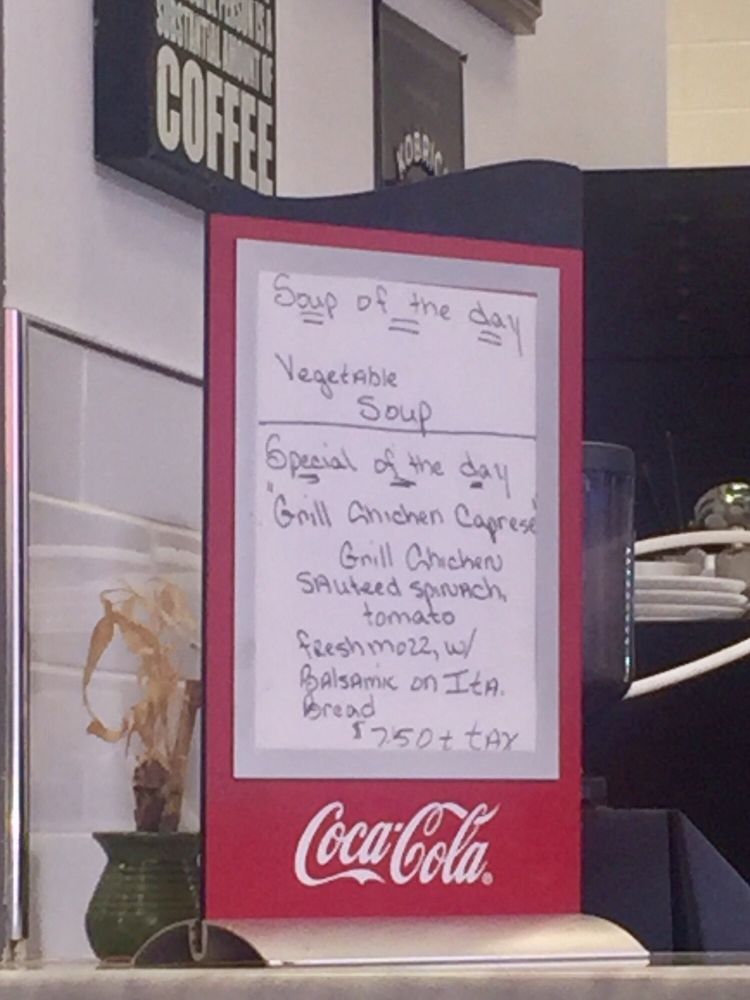 SUBSTANTIAL AMOUNT OF
COFFEE
KOBRIC
Soup of the day
Vegetable
Soup
Special of the day
"Grill Chicken Caprese"
Grill Chicken
Sauteed spinach,
tomato
fresh mozz, w/
Balsamic on Ita.
Bread
$7.50 + tax
Coca-Cola®